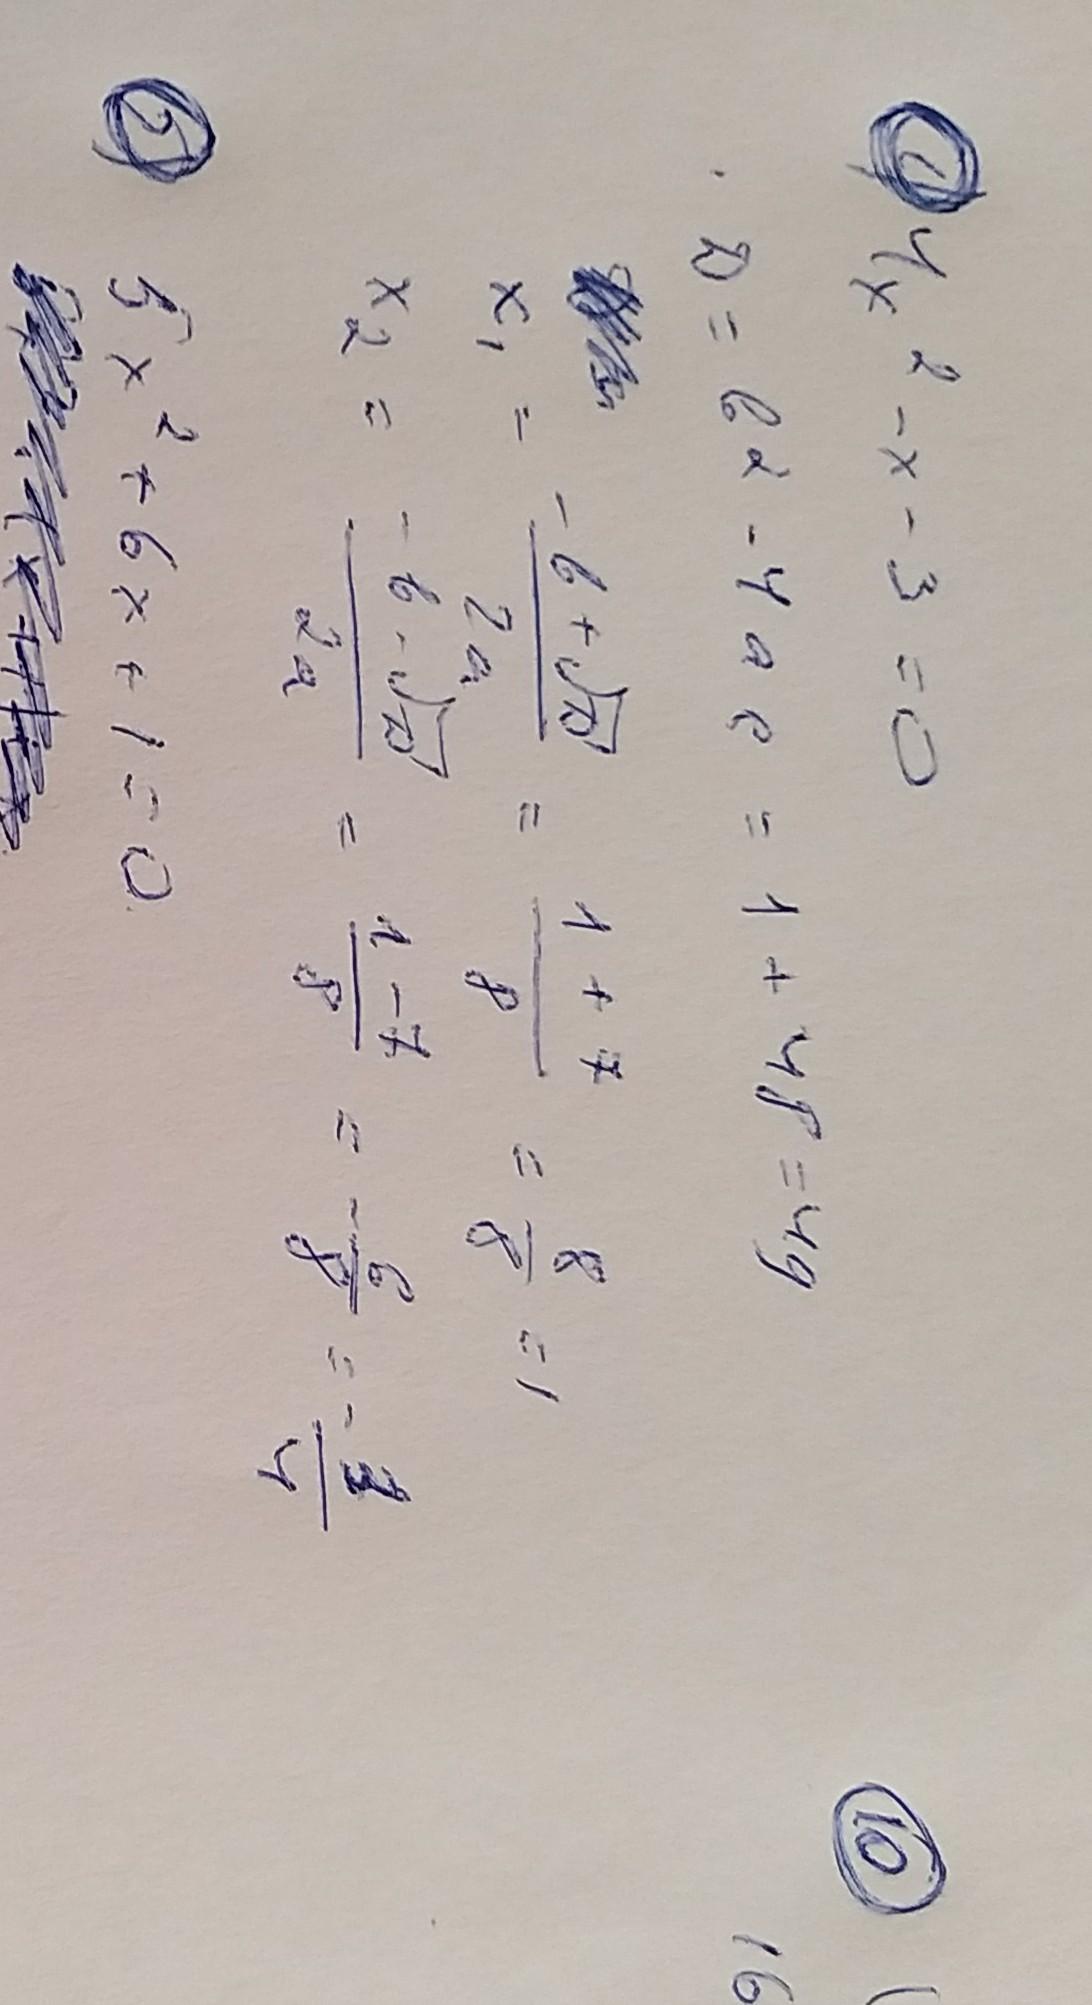 ① 4x² - x - 3 = 0
D = b² - 4ac = 1 + 48 = 49
x₁ = (-b + √D) / 2a = (1 + 7) / 8 = 8/8 = 1
x₂ = (-b - √D) / 2a = (1 - 7) / 8 = -6/8 = -3/4
5x² + 6x + 1 = 0
⑩
16